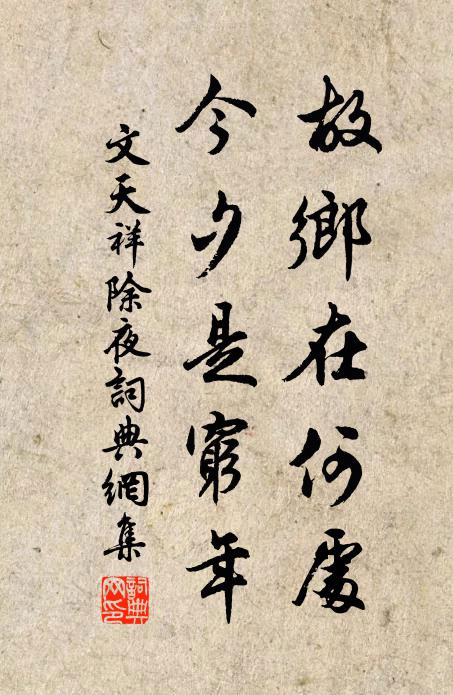 故鄉在何處
今夕是窮年
文天祥除夜詞典網集
詞典網印